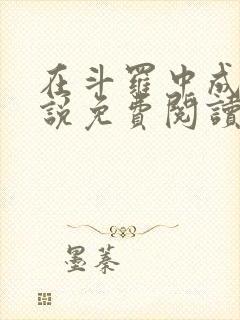 在斗羅中成
說免費閱讀
墨蓁